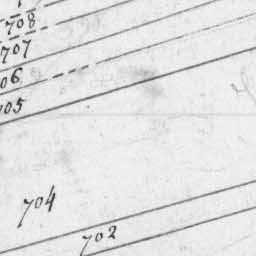 708
707
06
05
704
702